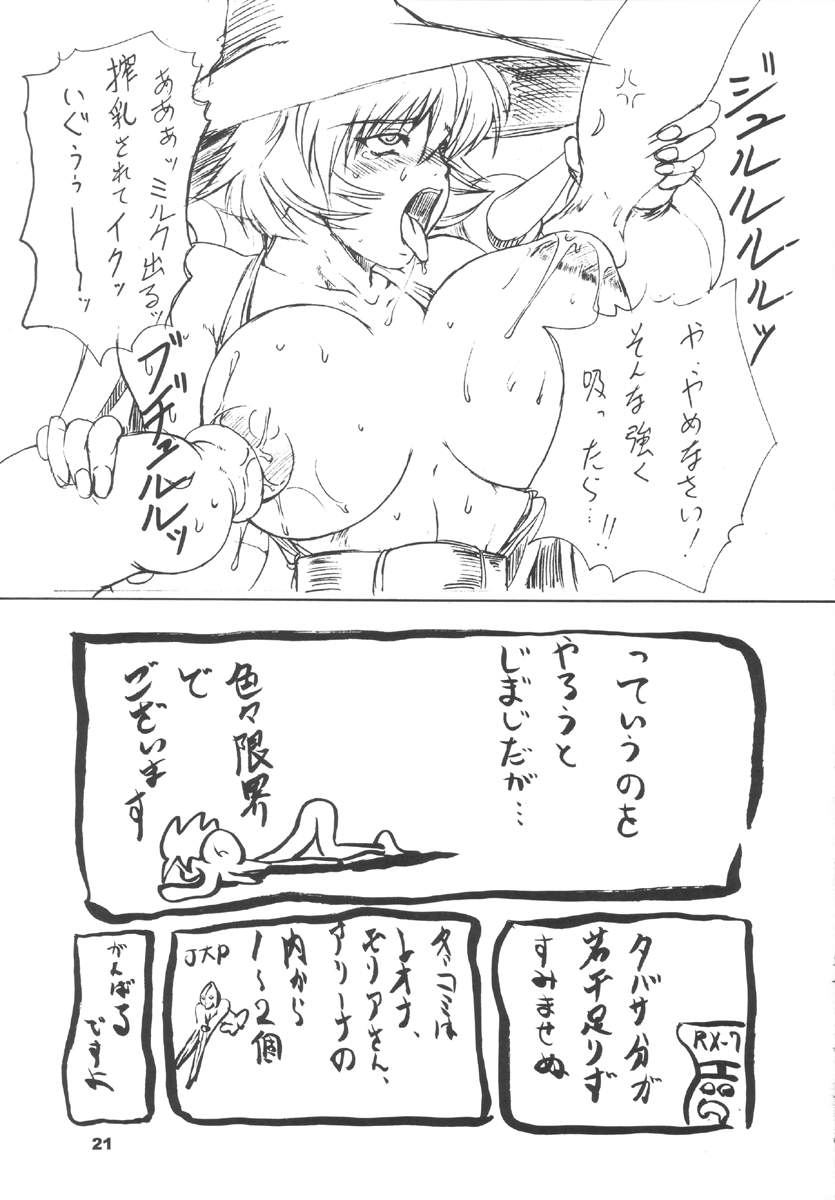 ジュルルルルルッ
や、やめなさい!
そんな強く
吸ったら…!!
あああッミルク出るッ
搾乳されてイクッ
いぐぅぅーーッ
ブヂュルルルッ
っていうのを
やろうと
じまじだが…
色々限界
で
ございます
タバサ分が
若干足りず
すみませぬ
RX-7
レオナ、
モリアさん、
アリーナの
内から
1〜2個
がんばる
ですよ
21